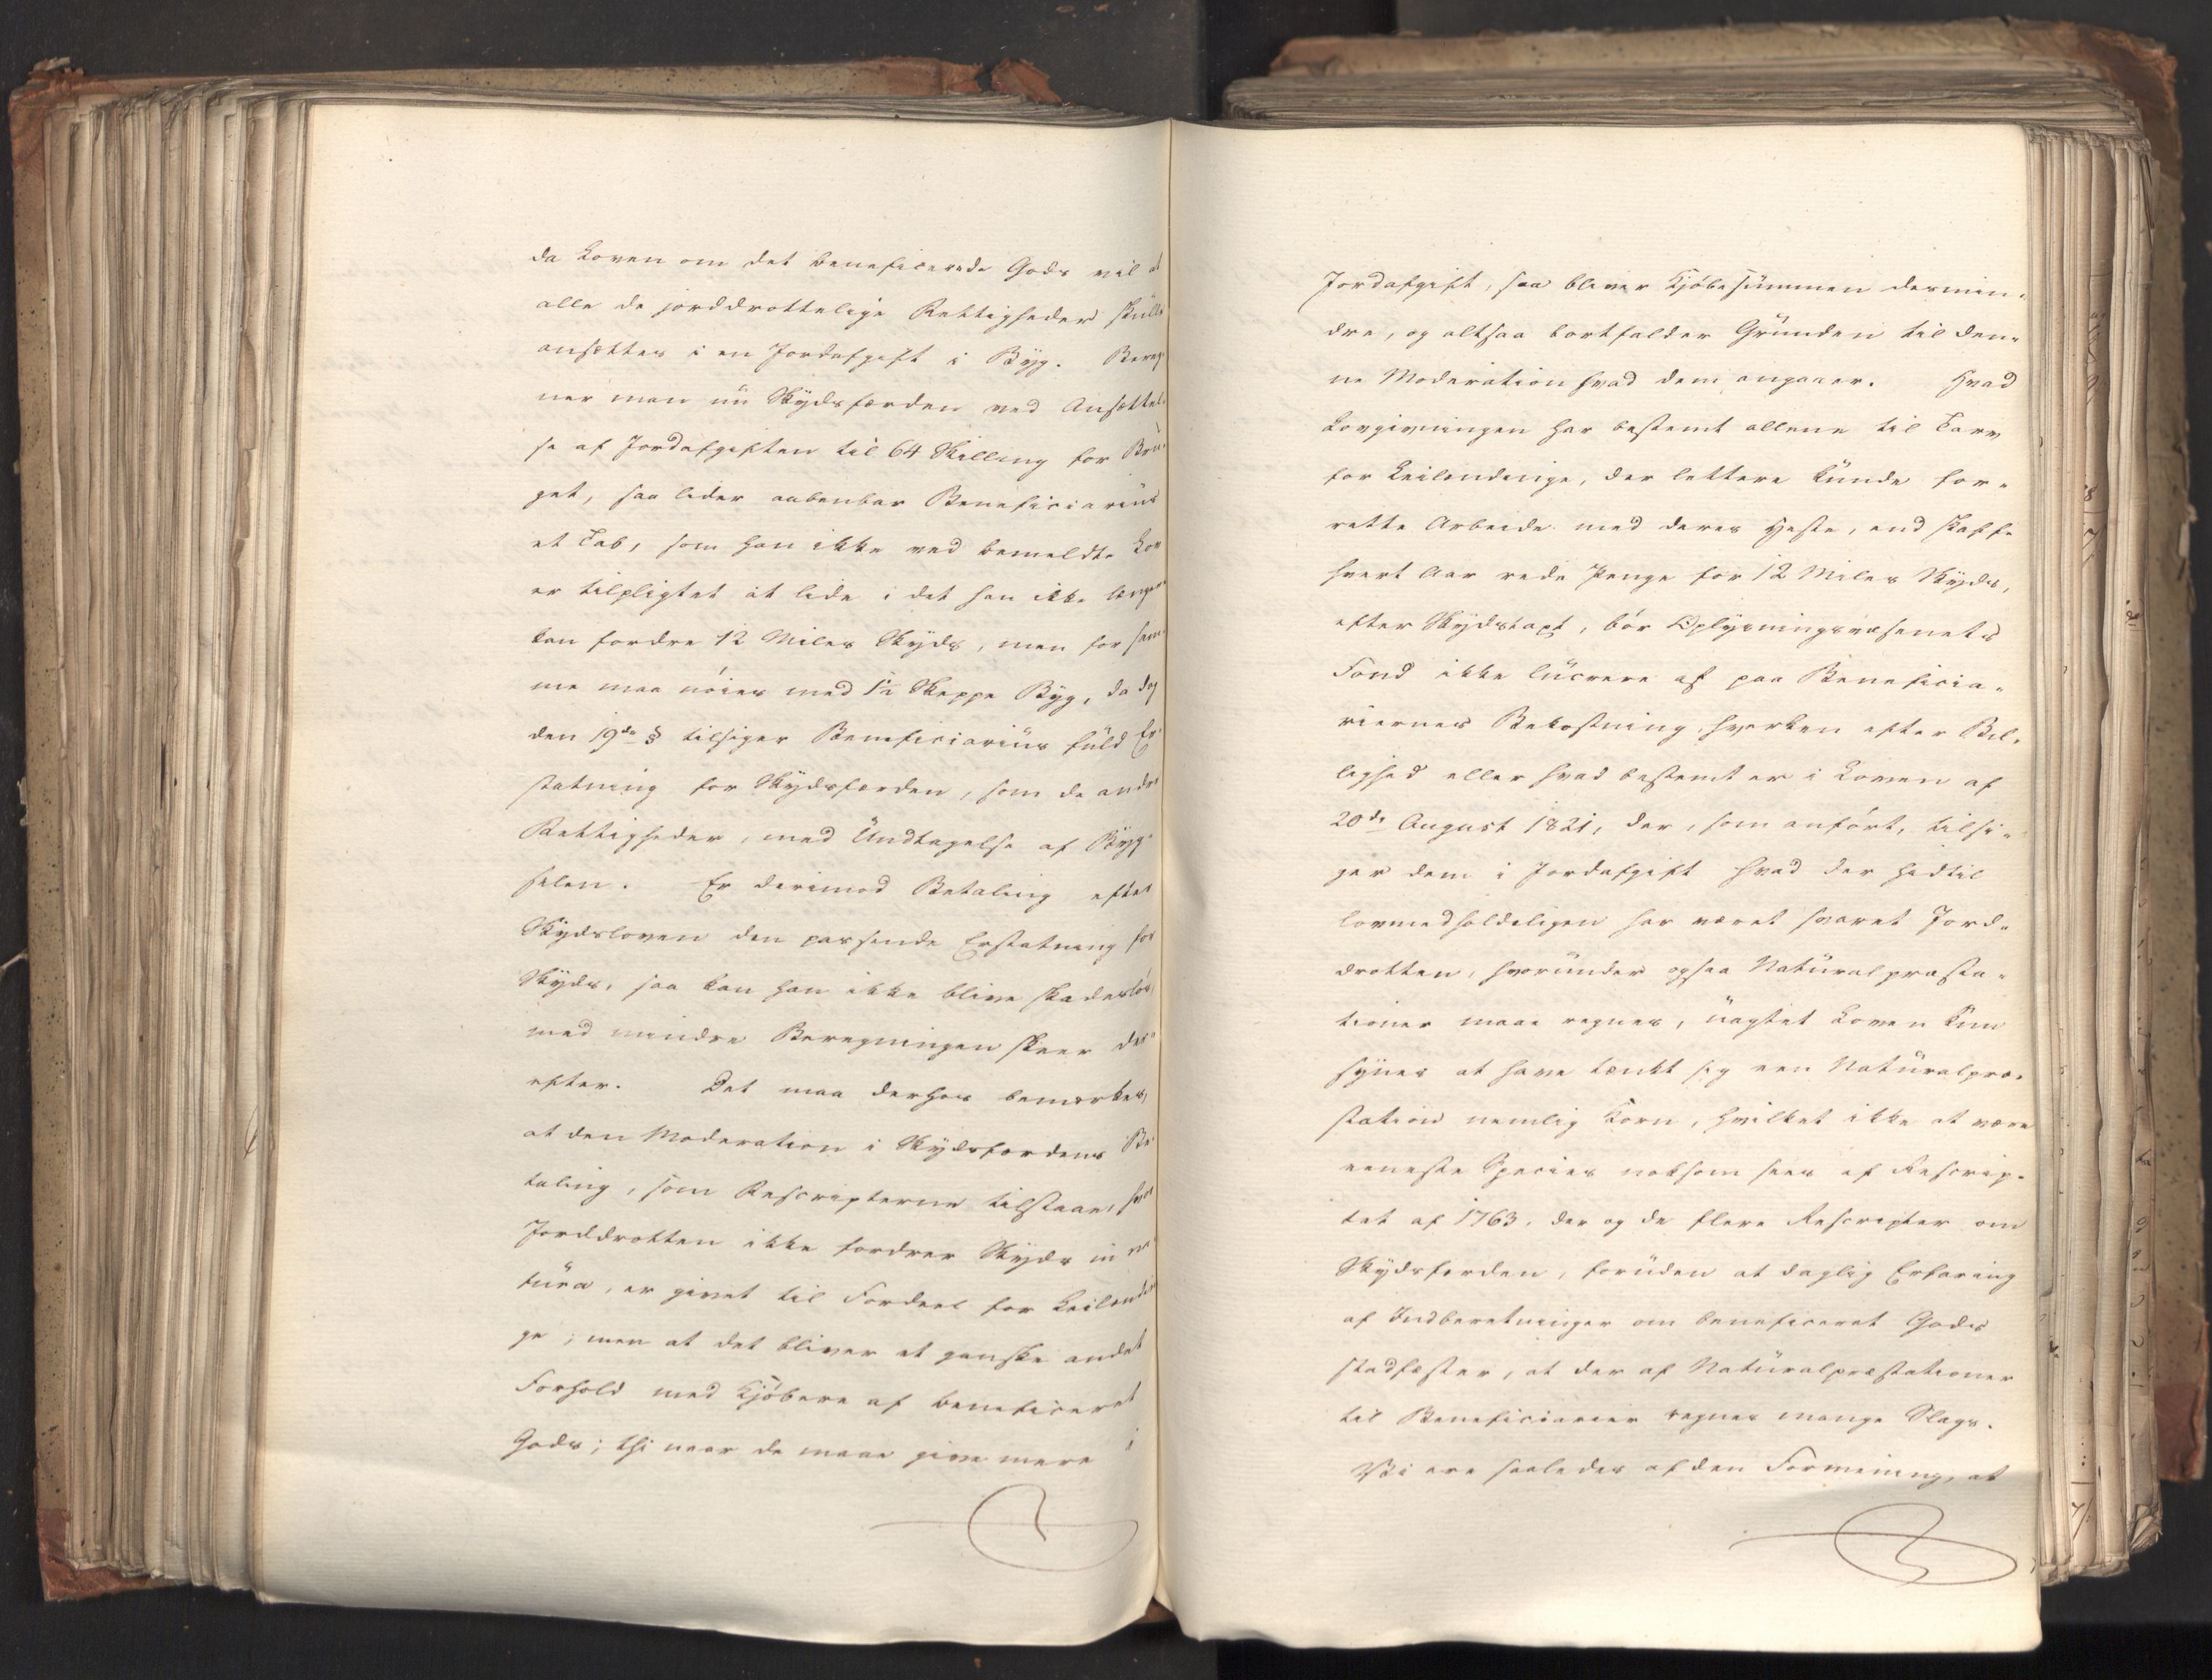 da Loven om det beneficerede Gods vil at
alle de jorddrottelige Rettigheder skulle
ansættes i en Jordafgift i Byg. Bereg-
ner man nu Skydsfærden ved Ansættel-
se af Jordafgiften til 64 Skilling for Bru-
get, saa lider aabenbar Beneficiarius
et Tab, som han ikke ved bemeldte Lov
er tilpligtet at lide i det han ikke længere
kan fordre 12 Miles Skyds, men for sam-
me maa nöies med 1½ Skeppe Byg, da dog
den 19de § tilsiger Beneficiarius fuld Er-
statning for Skydsfærden, som de andre
Rettigheder, med Undtagelse af Byg-
selen. Er derimod Betaling efter
Skydsloven den passende Erstatning for
Skyds, saa kan han ikke blive skadeslös,
med mindre Beregningen skeer der-
efter. Det maa derhos bemærkes,
at den Moderation i Skydsfærdens Be-
taling, som Rescripterne tilstaae, hvor
Jorddrotten ikke fordrer Skyds in na-
tura, er givet til Fordeel for Leilændin-
ge; men at det bliver et ganske andet
Forhold med Kjöbere af beneficeret
Gods; thi naar de maae give mere i
Jordafgift, saa bliver Kjöbesummen desmin-
dre, og altsaa bortfalder Grunden til den-
ne Moderation hvad dem angaaer. Hvad
Lovgivningen har bestemt allene til Tarv
for Leilændinge, der lettere kunde for-
rette Arbeide med deres Heste, end skaffe
hvert Aar rede Penge for 12 Miles Skyds,
efter Skydstaxt, bör Oplysningsvæsenets
Fond ikke lucrere af paa Beneficia-
riernes Bekostning, hverken efter Bil-
lighed eller hvad bestemt er i Loven af
20de August 1821, der, som anfört, tilsi-
ger dem i Jordafgift hvad der hidtil
lovmedholdeligen har været svaret Jord-
drotten, hvorunder ogsaa Naturalpræsta-
tioner maae regnes, uagtet Loven kun
synes at have tænkt sig een Naturalpræ-
station nemlig Korn, hvilket ikke at være
eeneste Species noksom sees af Rescrip-
tet af 1763, der og de flere Rescripter om
Skydsferden, foruden at daglig Erfaring
af Indberetninger om beneficeret Gods
stadfæster, at der af Naturalpræstationer
til Beneficiarier regnes mange Slags.
Vi ere saaledes af den Formening, at